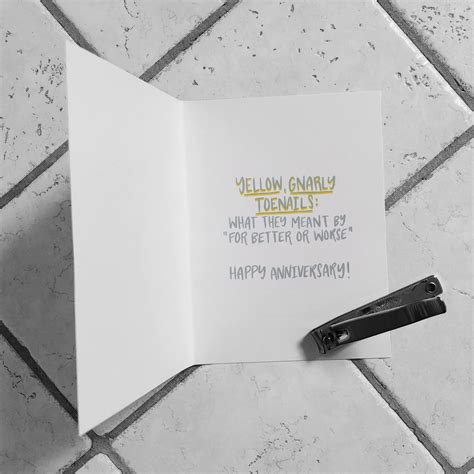 YELLOW, GNARLY
TOENAILS:
WHAT THEY MEANT BY
"FOR BETTER OR WORSE"
HAPPY ANNIVERSARY!